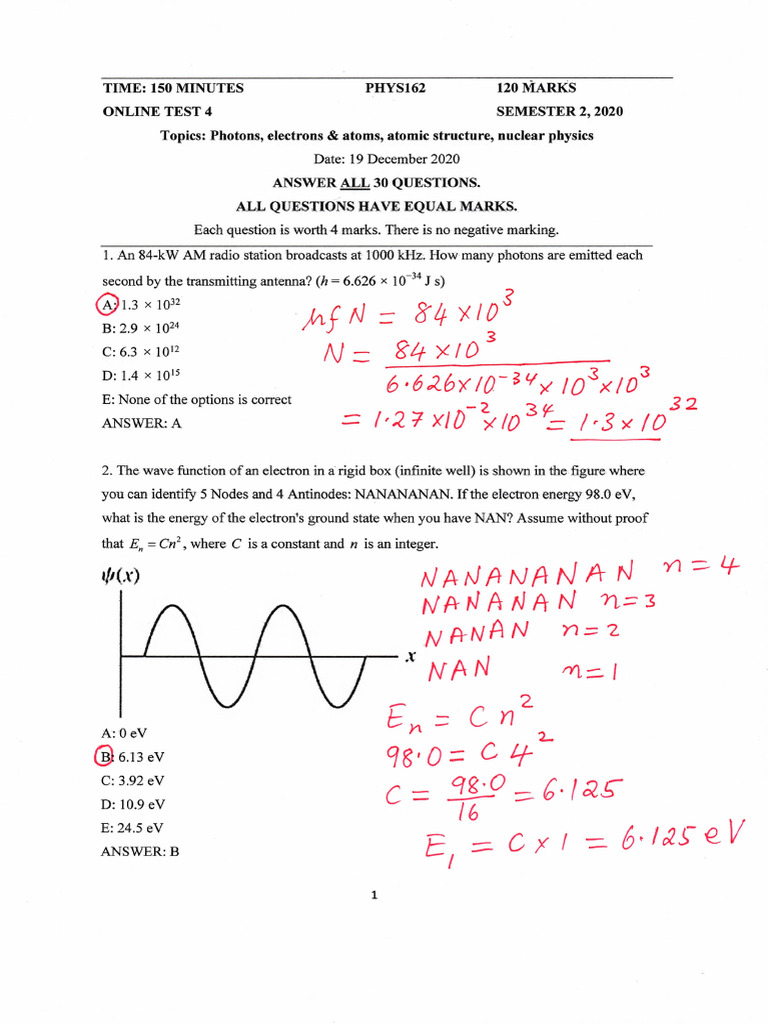 TIME: 150 MINUTES PHYS162 120 MARKS
ONLINE TEST 4 SEMESTER 2, 2020
Topics: Photons, electrons & atoms, atomic structure, nuclear physics
Date: 19 December 2020
ANSWER ALL 30 QUESTIONS.
ALL QUESTIONS HAVE EQUAL MARKS.
Each question is worth 4 marks. There is no negative marking.
1. An 84-kW AM radio station broadcasts at 1000 kHz. How many photons are emitted each
second by the transmitting antenna? (h = 6.626 × 10⁻³⁴ J s)
A: 1.3 × 10³²
B: 2.9 × 10²⁴
C: 6.3 × 10¹²
D: 1.4 × 10¹⁵
E: None of the options is correct
ANSWER: A
hfN = 84 × 10³
N = 84 × 10³
6.626 × 10⁻³⁴ × 10³ × 10³
= 1.27 × 10⁻² × 10³⁴ = 1.3 × 10³²
2. The wave function of an electron in a rigid box (infinite well) is shown in the figure where
you can identify 5 Nodes and 4 Antinodes: NANANANAN. If the electron energy 98.0 eV,
what is the energy of the electron's ground state when you have NAN? Assume without proof
that Eₙ = Cn², where C is a constant and n is an integer.
ψ(x)
x
A: 0 eV
B: 6.13 eV
C: 3.92 eV
D: 10.9 eV
E: 24.5 eV
ANSWER: B
NANANANAN n = 4
NANANAN n = 3
NANAN n = 2
NAN n = 1
Eₙ = Cn²
98.0 = C 4²
C = 98.0 = 6.125
16
E₁ = C × 1 = 6.125 eV
1